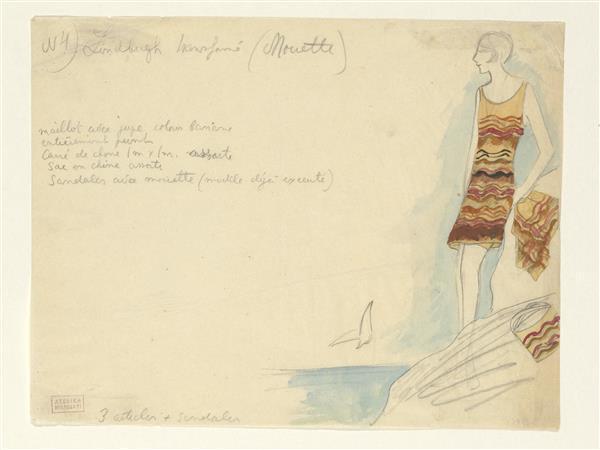 N 4) Lindbergh (Mouette)
maillot avec jupe, coloris
entièrement
Carré de chine 1 m x 1 m. assorti
Sac en chine assorti
Sandales avec mouette (modèle déjà executé)
3 articles + sandales